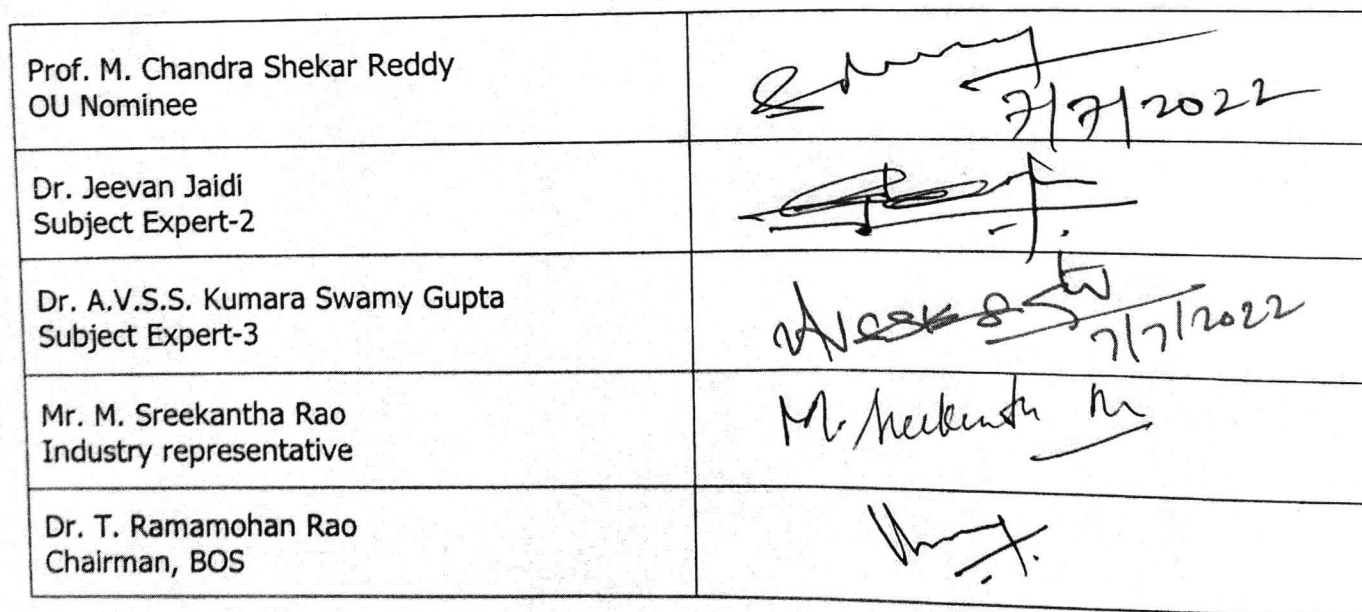 Prof. M. Chandra Shekar Reddy
OU Nominee
7/7/2022
Dr. Jeevan Jaidi
Subject Expert-2
Dr. A.V.S.S. Kumara Swamy Gupta
Subject Expert-3
7/7/2022
Mr. M. Sreekantha Rao
Industry representative
M. Sreekantha
Dr. T. Ramamohan Rao
Chairman, BOS